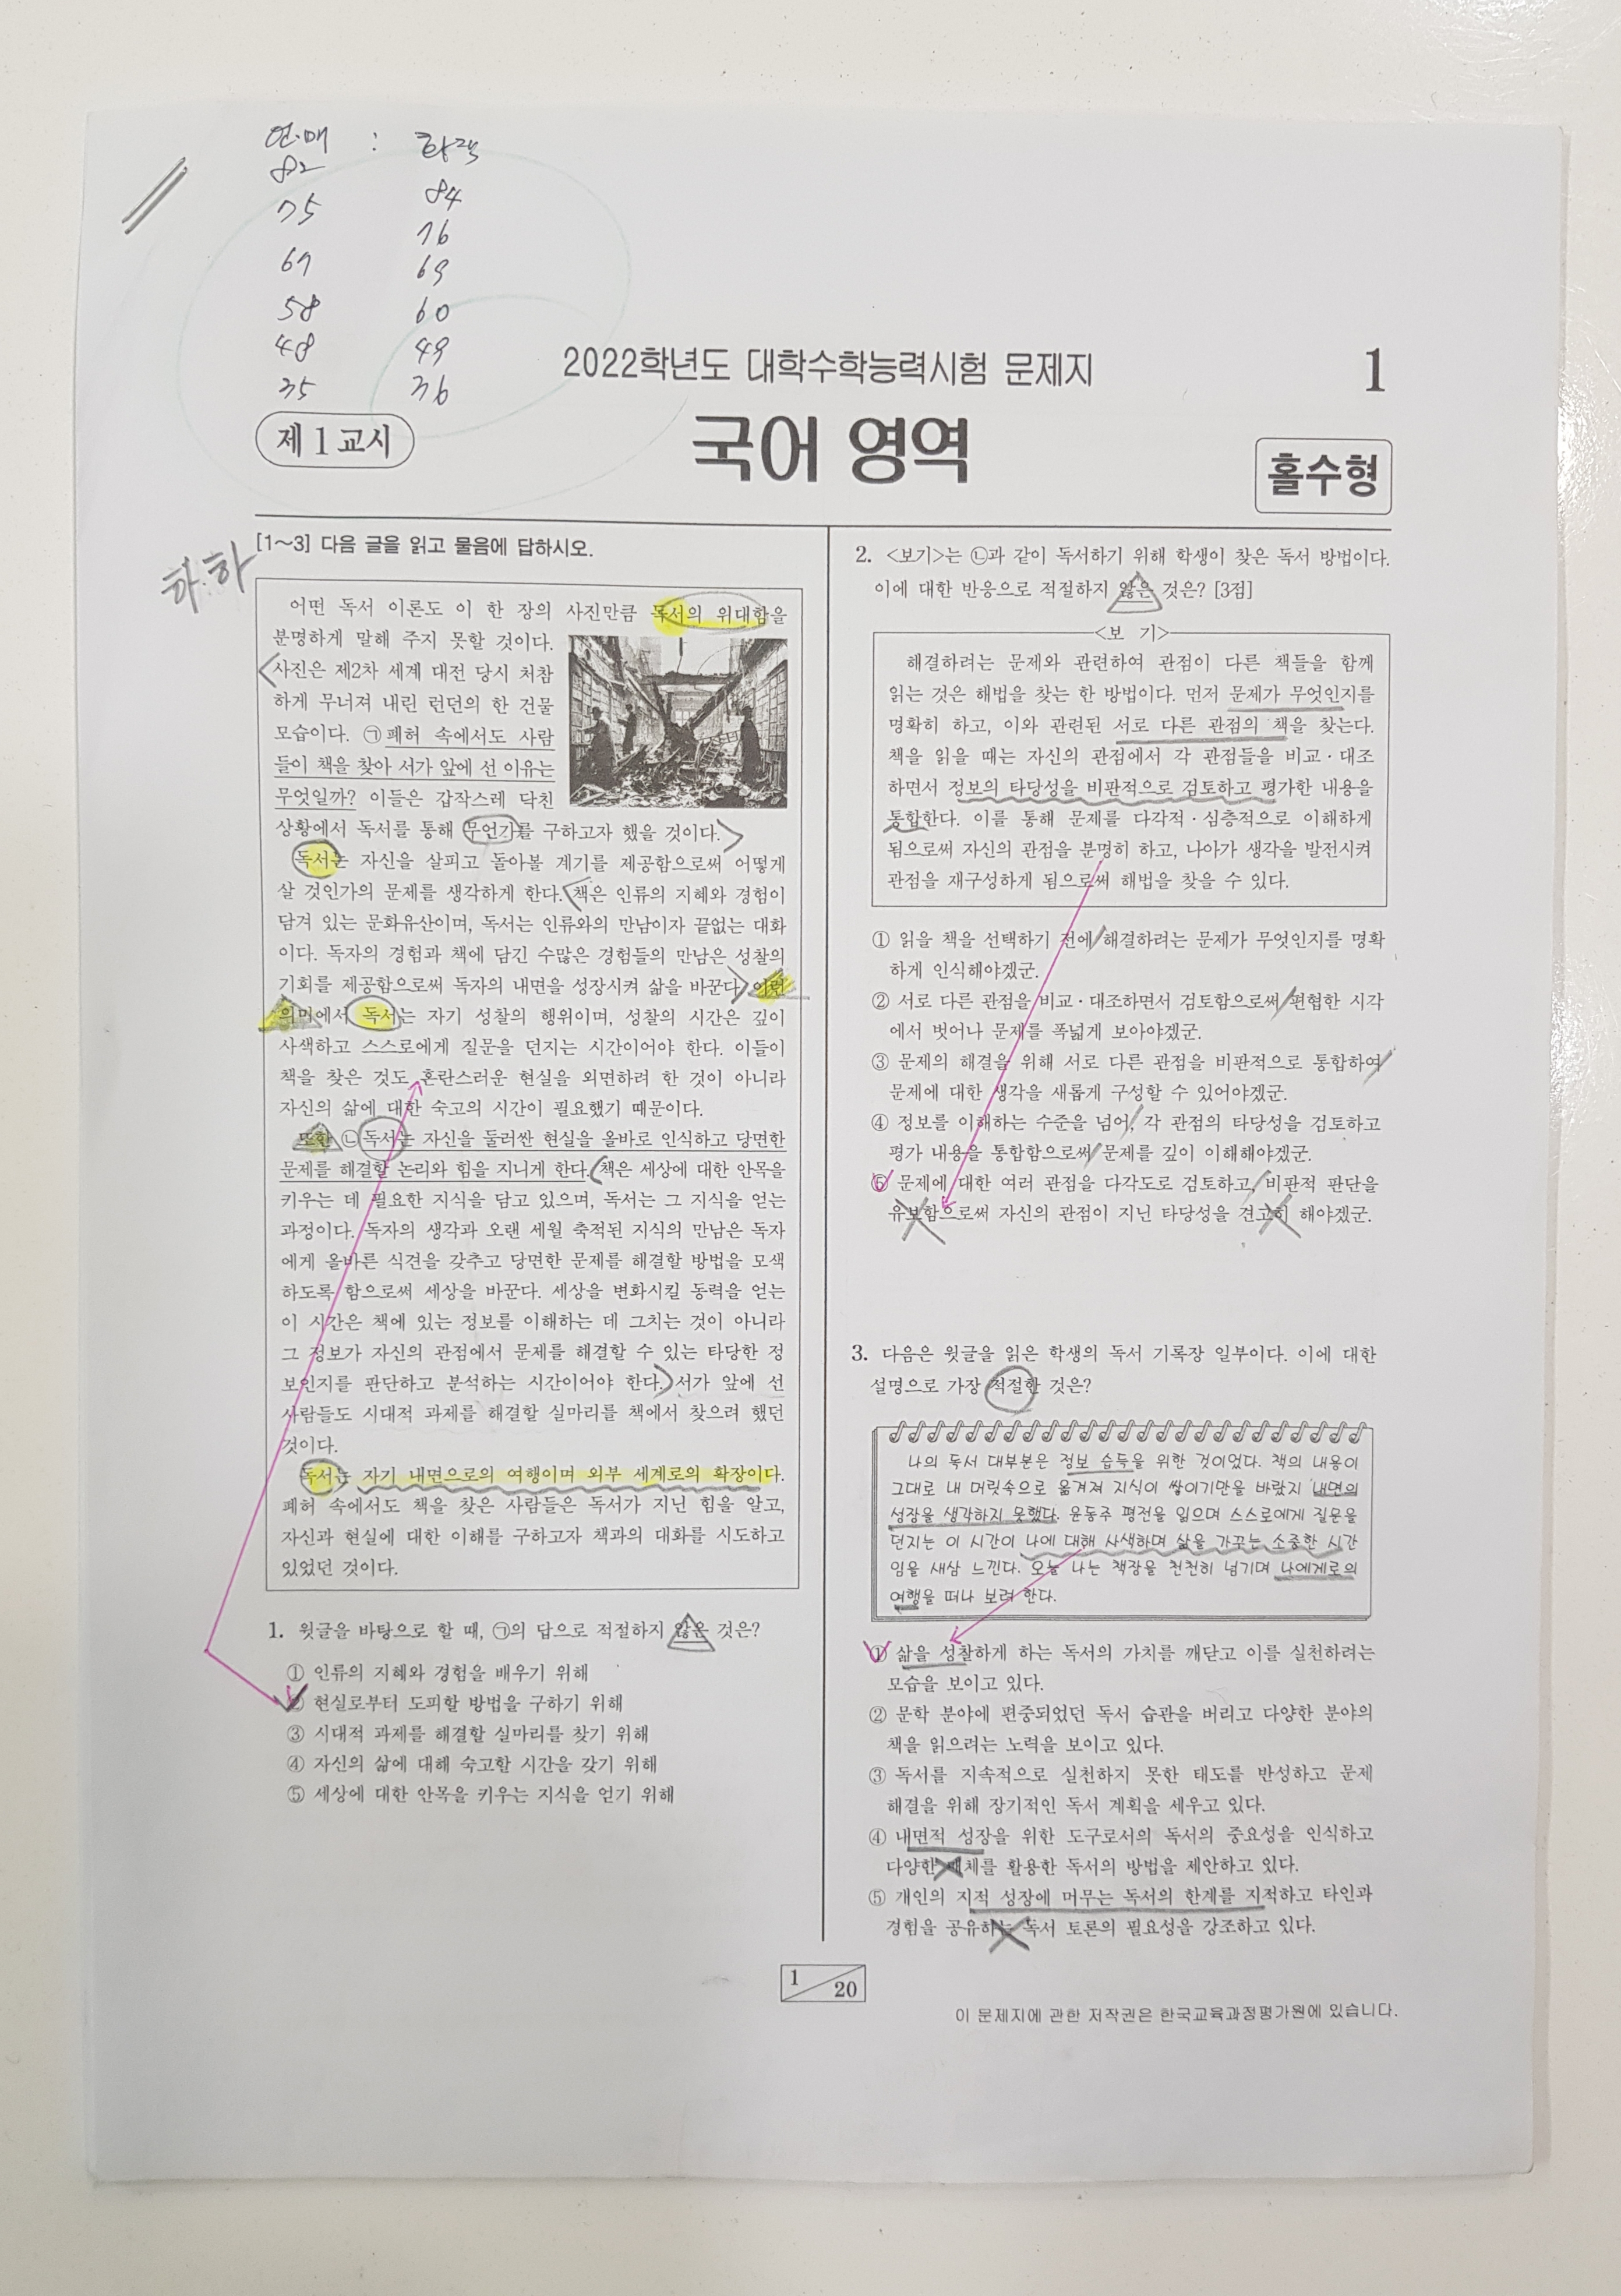 언·매 : 화작
82 84
75 76
67 69
58 60
48 49
35 36
2022학년도 대학수학능력시험 문제지
1
제 1 교시
국어 영역
홀수형
하.하
[1～3] 다음 글을 읽고 물음에 답하시오.
어떤 독서 이론도 이 한 장의 사진만큼 독서의 위대함을
분명하게 말해 주지 못할 것이다.
사진은 제2차 세계 대전 당시 처참
하게 무너져 내린 런던의 한 건물
모습이다. ㉠폐허 속에서도 사람
들이 책을 찾아 서가 앞에 선 이유는
무엇일까? 이들은 갑작스레 닥친
상황에서 독서를 통해 무언가를 구하고자 했을 것이다.
독서는 자신을 살피고 돌아볼 계기를 제공함으로써 어떻게
살 것인가의 문제를 생각하게 한다. 책은 인류의 지혜와 경험이
담겨 있는 문화유산이며, 독서는 인류와의 만남이자 끝없는 대화
이다. 독자의 경험과 책에 담긴 수많은 경험들의 만남은 성찰의
기회를 제공함으로써 독자의 내면을 성장시켜 삶을 바꾼다. 이런
의미에서 독서는 자기 성찰의 행위이며, 성찰의 시간은 깊이
사색하고 스스로에게 질문을 던지는 시간이어야 한다. 이들이
책을 찾은 것도 혼란스러운 현실을 외면하려 한 것이 아니라
자신의 삶에 대한 숙고의 시간이 필요했기 때문이다.
또한 ㉡독서는 자신을 둘러싼 현실을 올바로 인식하고 당면한
문제를 해결할 논리와 힘을 지니게 한다. 책은 세상에 대한 안목을
키우는 데 필요한 지식을 담고 있으며, 독서는 그 지식을 얻는
과정이다. 독자의 생각과 오랜 세월 축적된 지식의 만남은 독자
에게 올바른 식견을 갖추고 당면한 문제를 해결할 방법을 모색
하도록 함으로써 세상을 바꾼다. 세상을 변화시킬 동력을 얻는
이 시간은 책에 있는 정보를 이해하는 데 그치는 것이 아니라
그 정보가 자신의 관점에서 문제를 해결할 수 있는 타당한 정
보인지를 판단하고 분석하는 시간이어야 한다. 서가 앞에 선
사람들도 시대적 과제를 해결할 실마리를 책에서 찾으려 했던
것이다.
독서는 자기 내면으로의 여행이며 외부 세계로의 확장이다.
폐허 속에서도 책을 찾은 사람들은 독서가 지닌 힘을 알고,
자신과 현실에 대한 이해를 구하고자 책과의 대화를 시도하고
있었던 것이다.
1. 윗글을 바탕으로 할 때, ㉠의 답으로 적절하지 않은 것은?
① 인류의 지혜와 경험을 배우기 위해
② 현실로부터 도피할 방법을 구하기 위해
③ 시대적 과제를 해결할 실마리를 찾기 위해
④ 자신의 삶에 대해 숙고할 시간을 갖기 위해
⑤ 세상에 대한 안목을 키우는 지식을 얻기 위해
2. <보기>는 ㉡과 같이 독서하기 위해 학생이 찾은 독서 방법이다.
이에 대한 반응으로 적절하지 않은 것은? [3점]
<보 기>
해결하려는 문제와 관련하여 관점이 다른 책들을 함께
읽는 것은 해법을 찾는 한 방법이다. 먼저 문제가 무엇인지를
명확히 하고, 이와 관련된 서로 다른 관점의 책을 찾는다.
책을 읽을 때는 자신의 관점에서 각 관점들을 비교·대조
하면서 정보의 타당성을 비판적으로 검토하고 평가한 내용을
통합한다. 이를 통해 문제를 다각적·심층적으로 이해하게
됨으로써 자신의 관점을 분명히 하고, 나아가 생각을 발전시켜
관점을 재구성하게 됨으로써 해법을 찾을 수 있다.
① 읽을 책을 선택하기 전에 해결하려는 문제가 무엇인지를 명확
하게 인식해야겠군.
② 서로 다른 관점을 비교·대조하면서 검토함으로써 편협한 시각
에서 벗어나 문제를 폭넓게 보아야겠군.
③ 문제의 해결을 위해 서로 다른 관점을 비판적으로 통합하여
문제에 대한 생각을 새롭게 구성할 수 있어야겠군.
④ 정보를 이해하는 수준을 넘어, 각 관점의 타당성을 검토하고
평가 내용을 통합함으로써 문제를 깊이 이해해야겠군.
⑤ 문제에 대한 여러 관점을 다각도로 검토하고, 비판적 판단을
유보함으로써 자신의 관점이 지닌 타당성을 견고히 해야겠군.
3. 다음은 윗글을 읽은 학생의 독서 기록장 일부이다. 이에 대한
설명으로 가장 적절한 것은?
나의 독서 대부분은 정보 습득을 위한 것이었다. 책의 내용이
그대로 내 머릿속으로 옮겨져 지식이 쌓이기만을 바랐지 내면의
성장을 생각하지 못했다. 윤동주 평전을 읽으며 스스로에게 질문을
던지는 이 시간이 나에 대해 사색하며 삶을 가꾸는 소중한 시간
임을 새삼 느낀다. 오늘 나는 책장을 천천히 넘기며 나에게로의
여행을 떠나 보려 한다.
① 삶을 성찰하게 하는 독서의 가치를 깨닫고 이를 실천하려는
모습을 보이고 있다.
② 문학 분야에 편중되었던 독서 습관을 버리고 다양한 분야의
책을 읽으려는 노력을 보이고 있다.
③ 독서를 지속적으로 실천하지 못한 태도를 반성하고 문제
해결을 위해 장기적인 독서 계획을 세우고 있다.
④ 내면적 성장을 위한 도구로서의 독서의 중요성을 인식하고
다양한 매체를 활용한 독서의 방법을 제안하고 있다.
⑤ 개인의 지적 성장에 머무는 독서의 한계를 지적하고 타인과
경험을 공유하는 독서 토론의 필요성을 강조하고 있다.
1 20
이 문제지에 관한 저작권은 한국교육과정평가원에 있습니다.